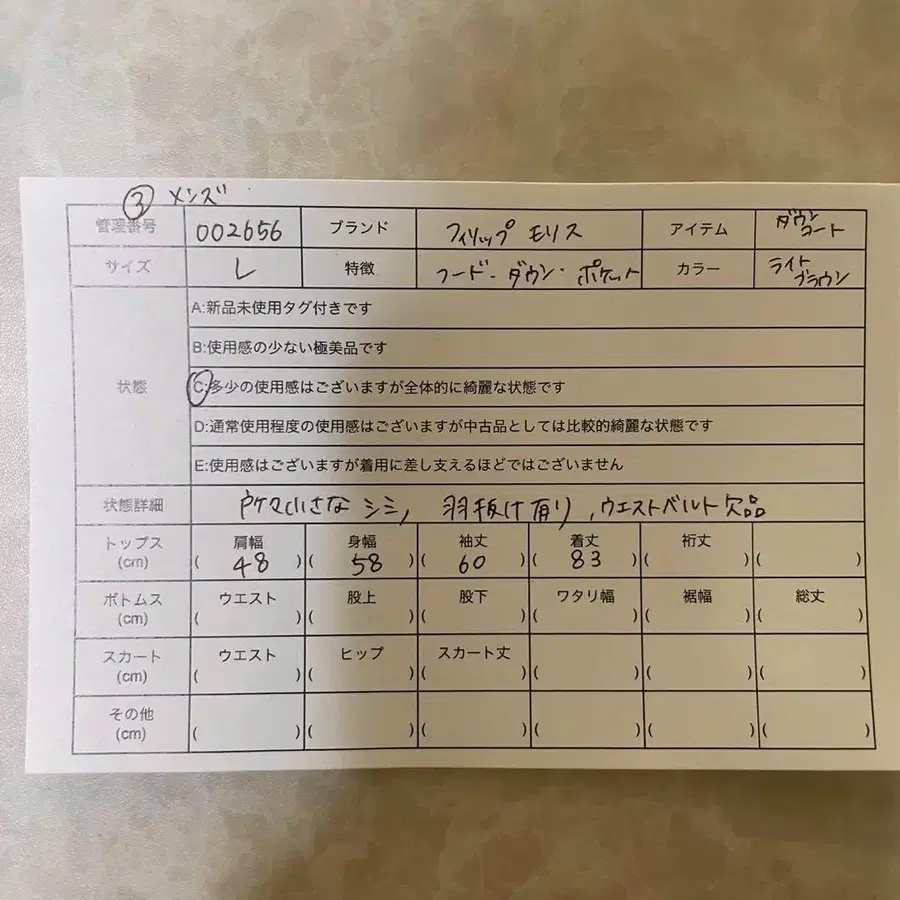 ③ メンズ
管理番号 002656 ブランド フィリップ モリス アイテム ダウンコート
サイズ L 特徴 フード・ダウン・ポケット カラー ライトブラウン
状態
A:新品未使用タグ付きです
B:使用感の少ない極美品です
C:多少の使用感はございますが全体的に綺麗な状態です
D:通常使用程度の使用感はございますが中古品としては比較的綺麗な状態です
E:使用感はございますが着用に差し支えるほどではございません
状態詳細 小さな シミ, 羽抜け有り, ウエストベルト欠品
トップス 肩幅 身幅 袖丈 着丈 裄丈
(cm) ( 48 ) ( 58 ) ( 60 ) ( 83 ) ( ) ( )
ボトムス ウエスト 股上 股下 ワタリ幅 裾幅 総丈
(cm) ( ) ( ) ( ) ( ) ( ) ( )
スカート ウエスト ヒップ スカート丈
(cm) ( ) ( ) ( ) ( ) ( ) ( )
その他
(cm) ( ) ( ) ( ) ( ) ( ) ( )